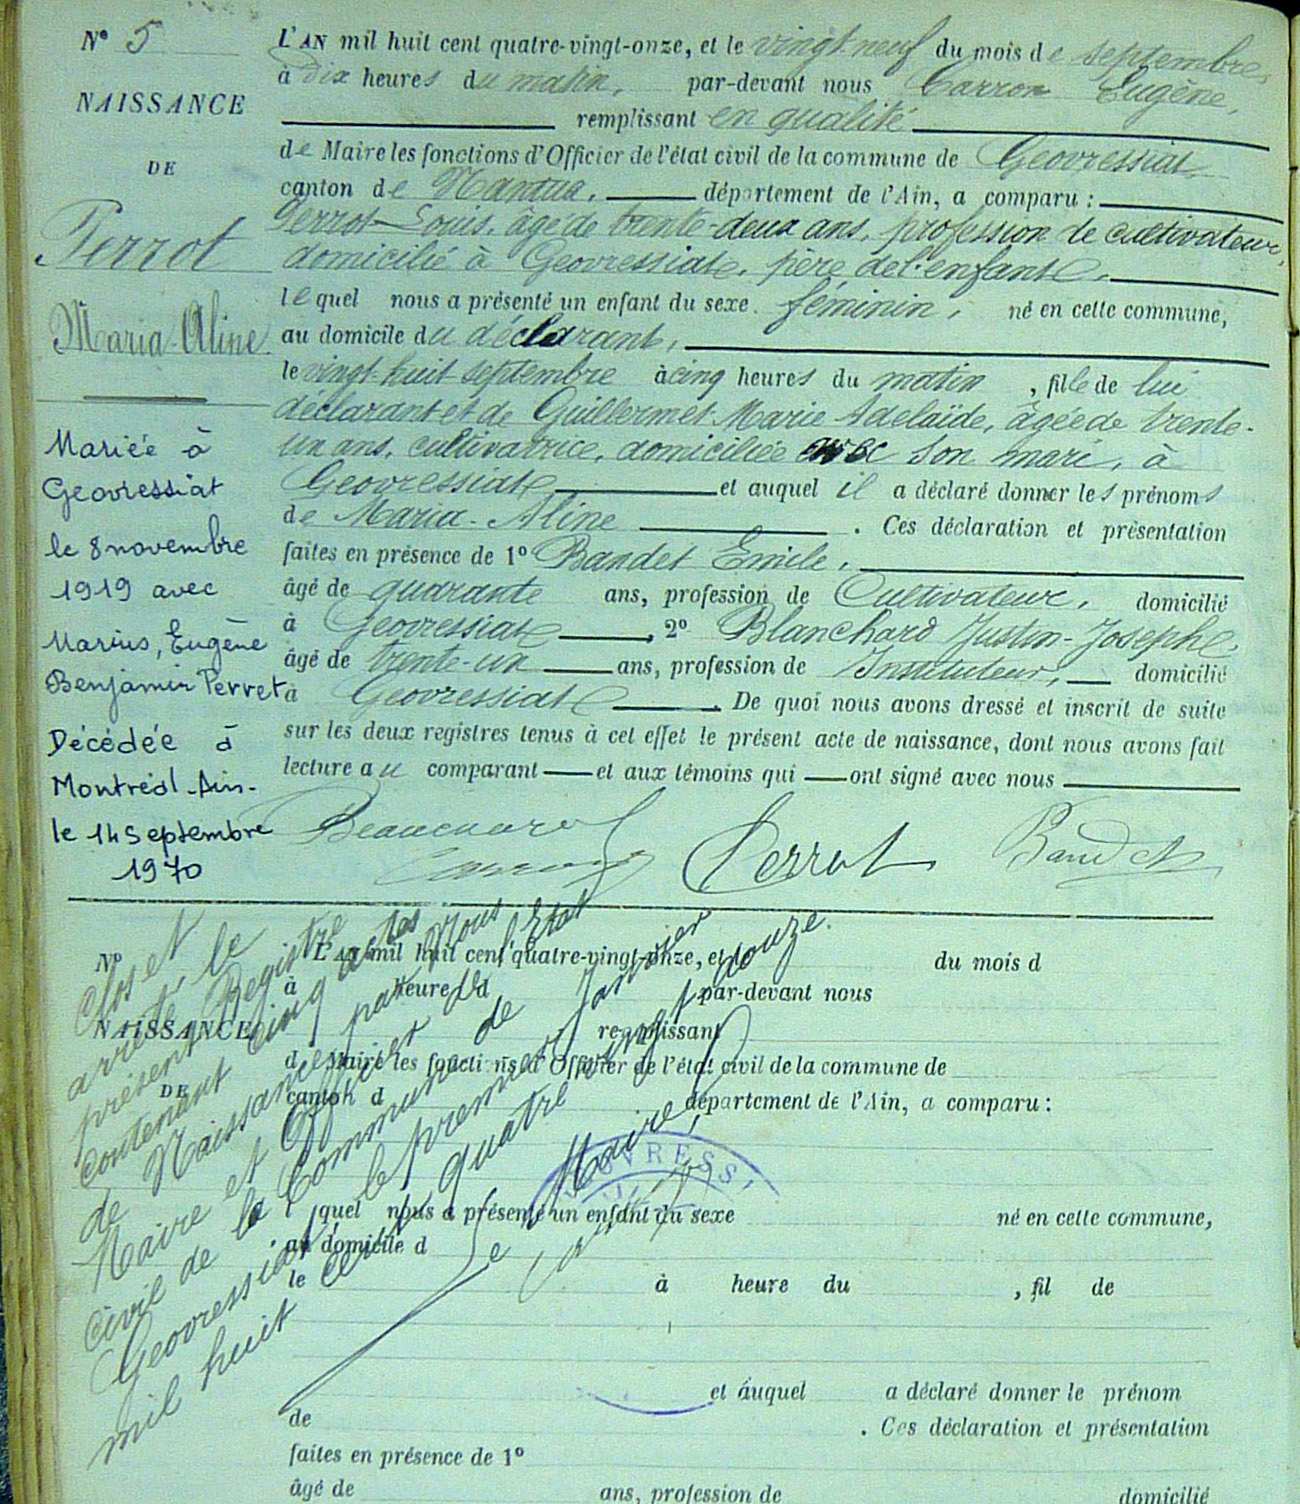 N° 5
NAISSANCE
DE
Perrot
Maria-Aline
Mariée à
Geovressiat
le 8 novembre
1919 avec
Marius, Eugène
Benjamin Perret
Décédée à
Montréal-Ain-
le 14 septembre
1970
L'AN mil huit cent quatre-vingt-onze, et le vingt neuf du mois de septembre
à dix heures du matin, par-devant nous Carron Eugène,
remplissant en qualité
de Maire les fonctions d'Officier de l'état civil de la commune de Geovressiat
canton de Nantua, département de l'Ain, a comparu :
Perrot Louis, âgé de trente-deux ans, profession de cultivateur,
domicilié à Geovressiat, père de l'enfant,
lequel nous a présenté un enfant du sexe féminin, né en cette commune,
au domicile du déclarant,
le vingt-huit septembre à cinq heures du matin, fille de lui
déclarant et de Guillermet Marie Adelaïde, âgée de trente-
un ans, cultivatrice, domiciliée avec son mari, à
Geovressiat et auquel il a déclaré donner les prénoms
de Maria-Aline. Ces déclaration et présentation
faites en présence de 1° Bandet Emile,
âgé de quarante ans, profession de Cultivateur, domicilié
à Geovressiat, 2° Blanchard Justin-Joseph,
âgé de trente-un ans, profession de Instituteur, domicilié
à Geovressiat. De quoi nous avons dressé et inscrit de suite
sur les deux registres tenus à cet effet le présent acte de naissance, dont nous avons fait
lecture au comparant et aux témoins qui ont signé avec nous
Perrot Bandet
Clos et
arrêté le
présent Registre
contenant cinq actes
de Naissances par Nous
Maire et Officier de l'Etat
civil de la Commune de
Geovressiat, le premier Janvier
mil huit cent quatre vingt douze.
Le Maire,
N°
NAISSANCE
DE
L'AN mil huit cent quatre-vingt-onze, et le du mois d
à heure d par-devant nous
remplissant
d Maire les fonctions d'Officier de l'état civil de la commune de
canton d département de l'Ain, a comparu :
GEOVRESSI
l quel nous a présenté un enfant du sexe né en cette commune,
au domicile d
le à heure du , fil de
et auquel a déclaré donner le prénom
de . Ces déclaration et présentation
faites en présence de 1°
âgé de ans, profession de domicilié